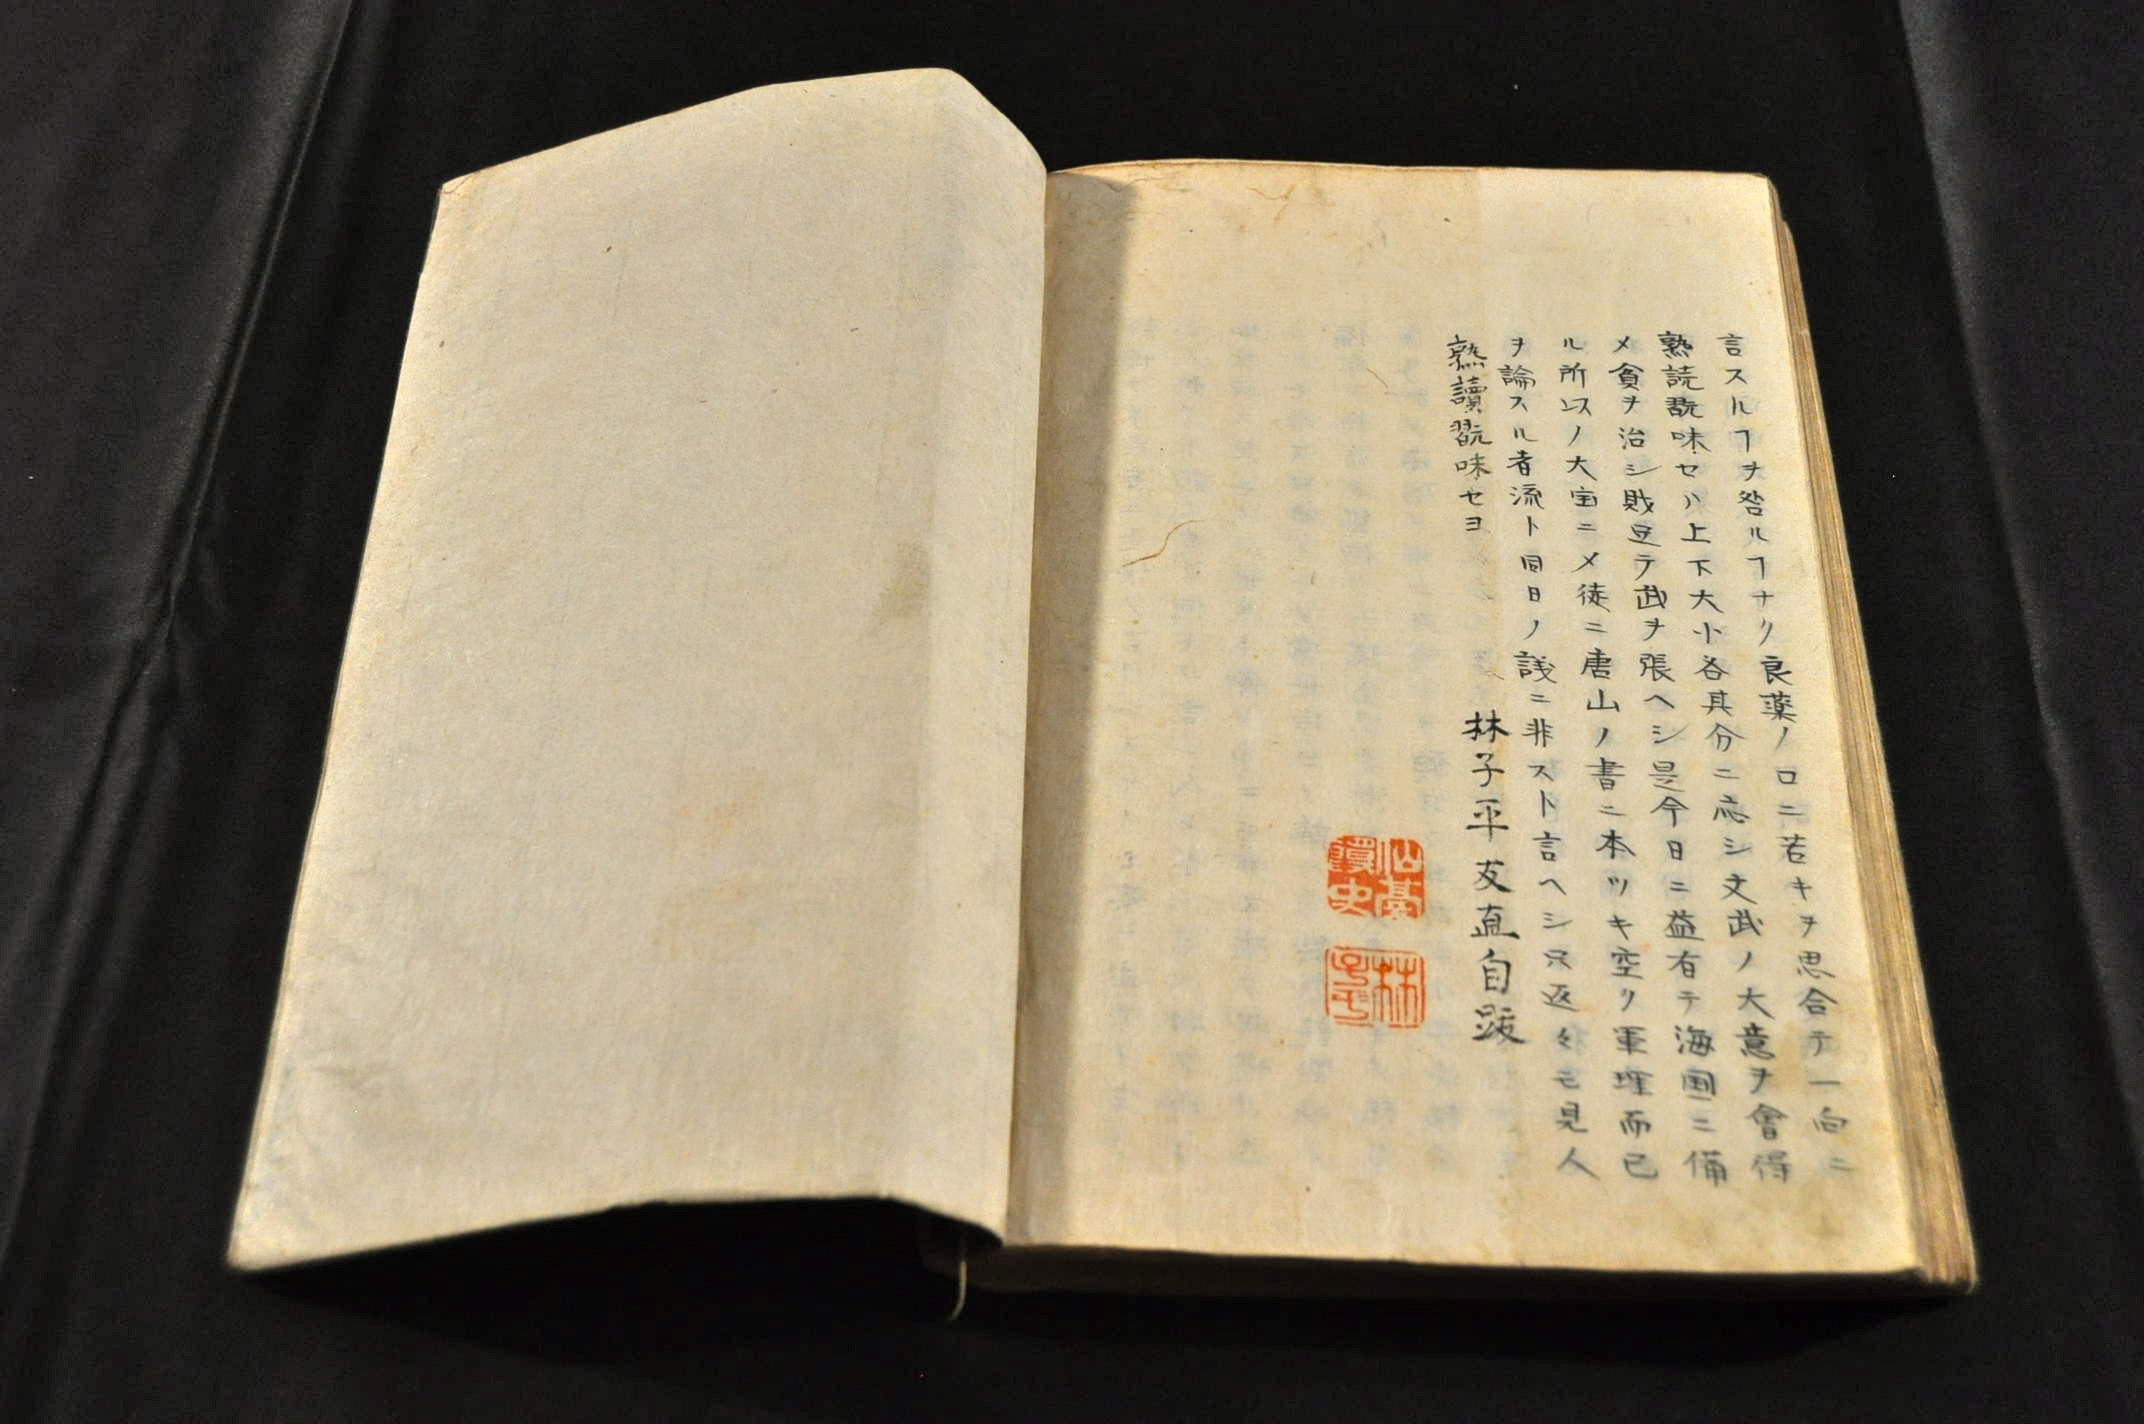 言スルヿヲ咎ルヿナク良薬ノ口ニ苦キヲ思合テ一向ニ
熟読翫味セハ上下大小各其分ニ応シ文武ノ大意ヲ會得
メ貧ヲ治シ財足テ武ヲ張ヘシ是今日ニ益有テ海国ニ備
ル所以ノ大宝ニメ徒ニ唐山ノ書ニ本ツキ空ク軍理而已
ヲ論スル者流ト同日ノ談ニ非スト言ヘシ只返々モ見人
熟讀翫味セヨ
林子平友直自跋
仙臺
林